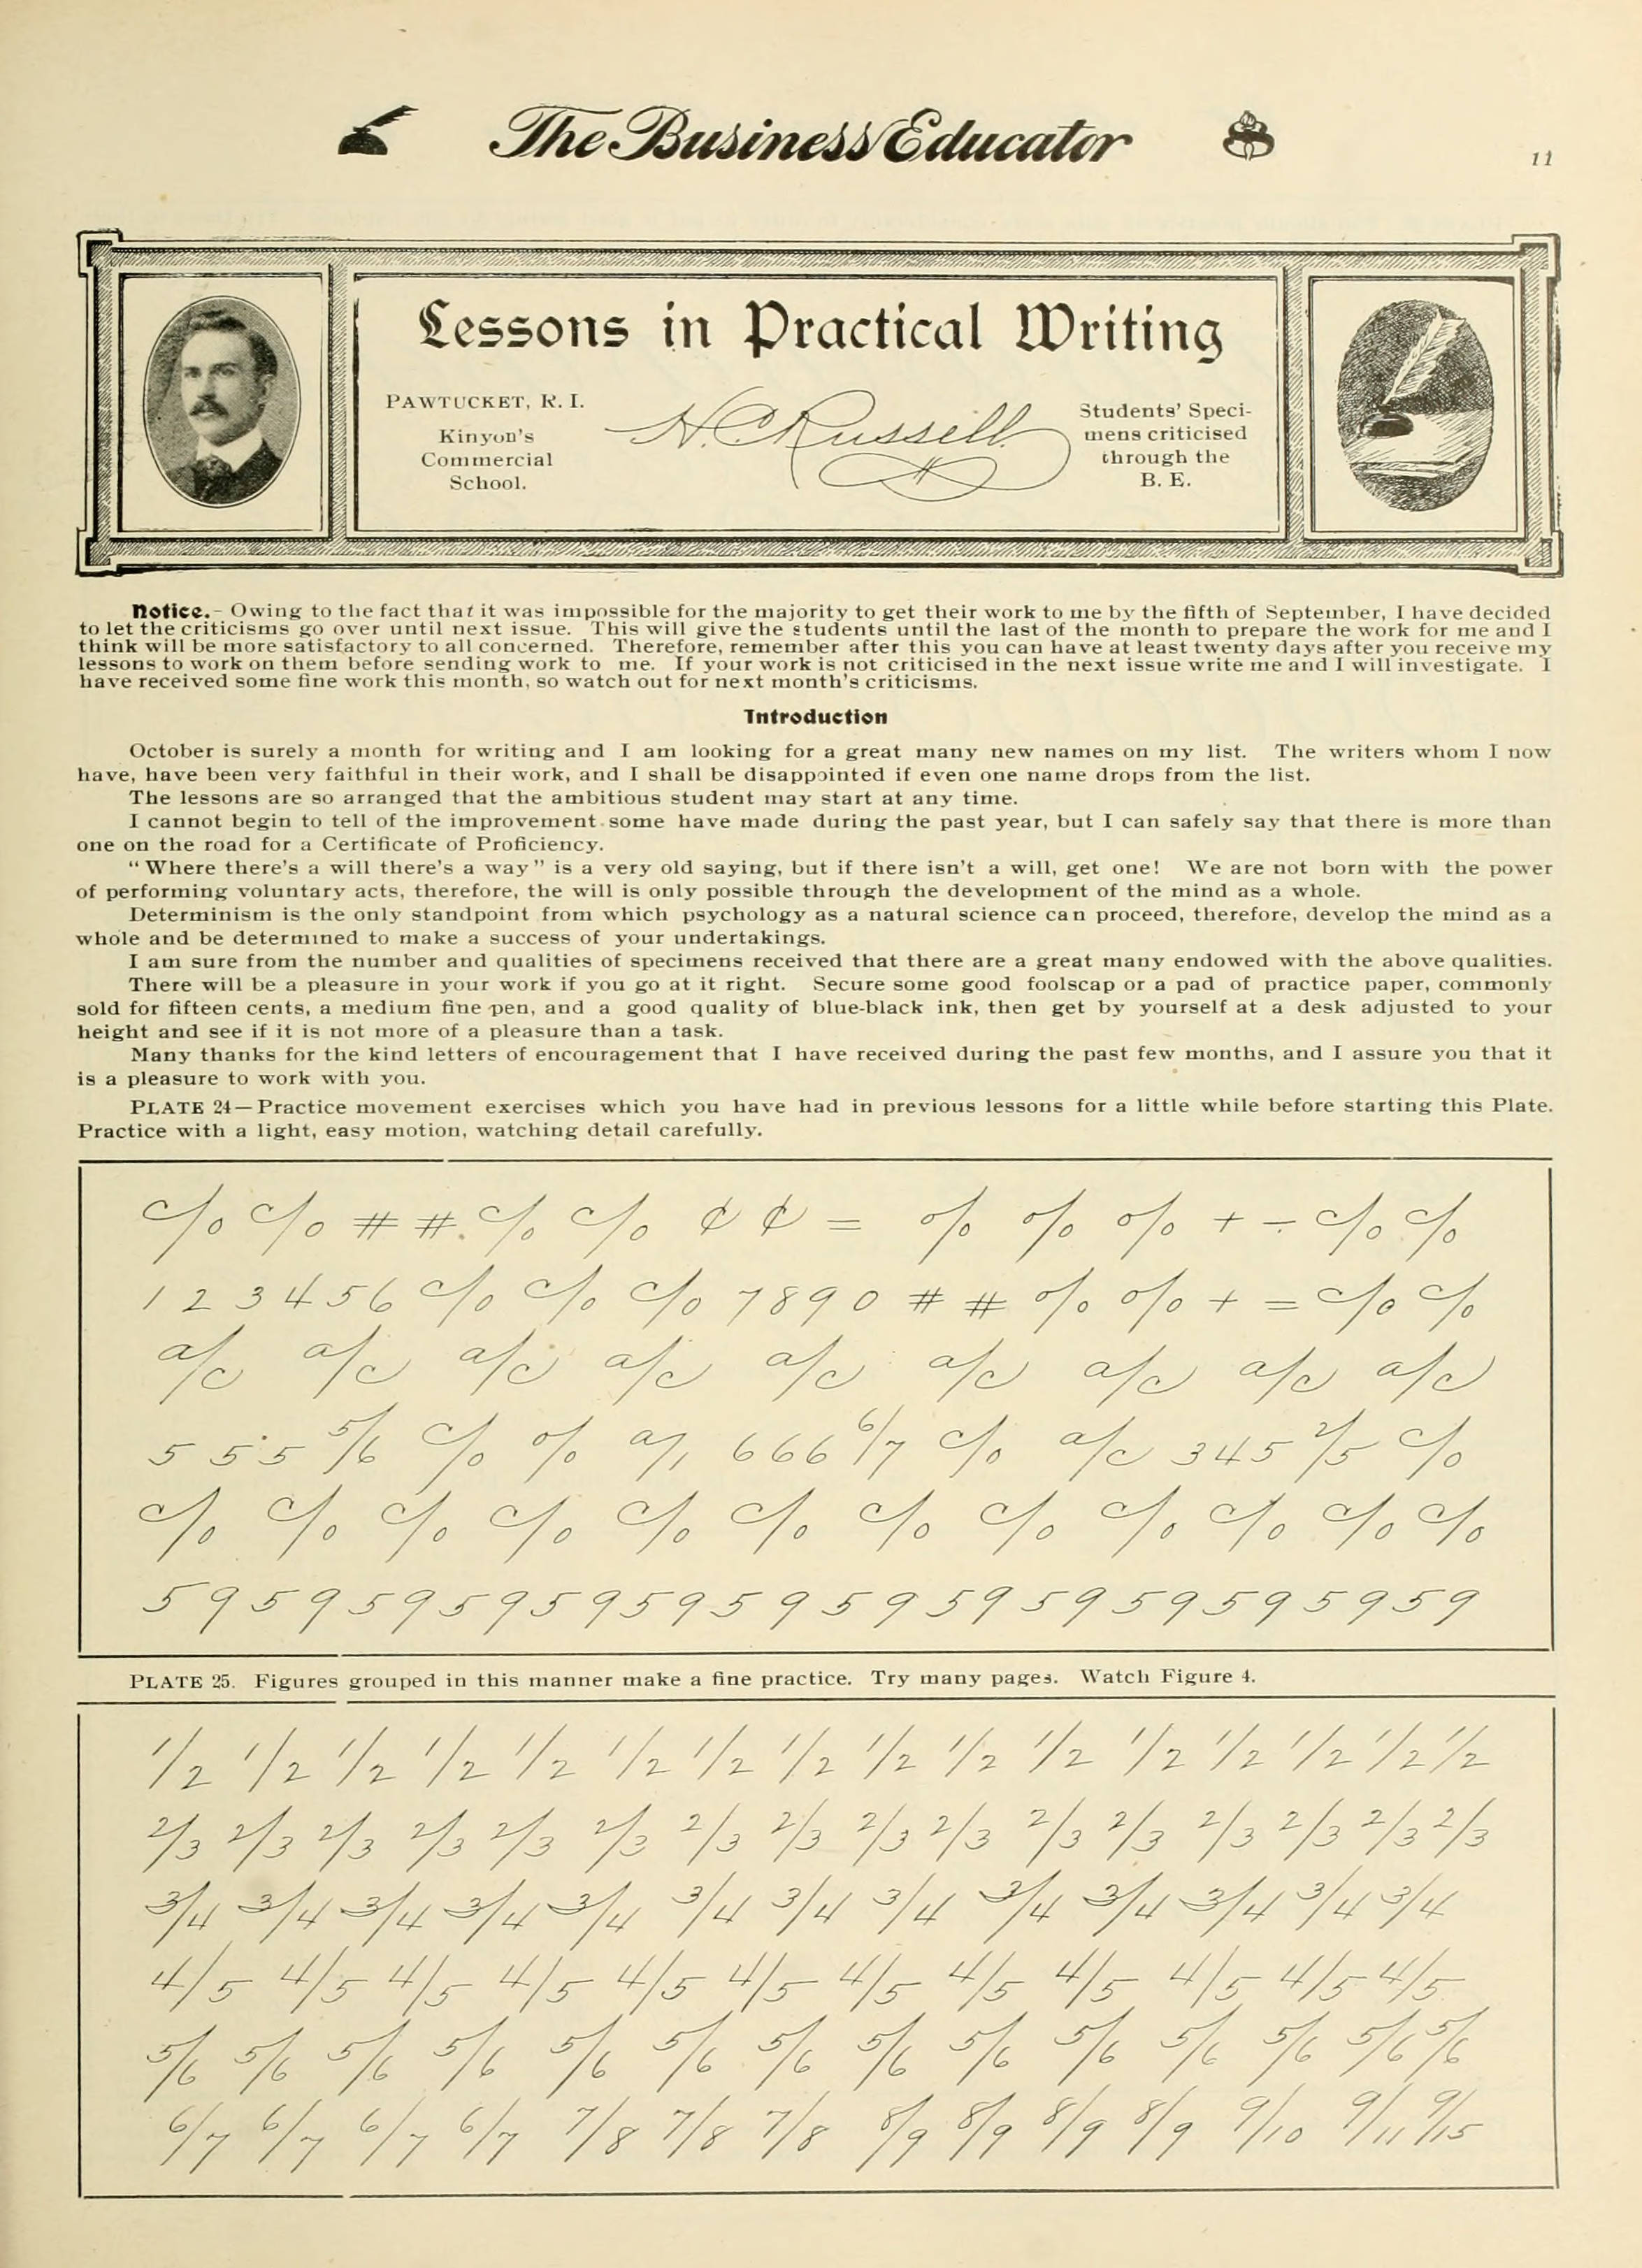 The Business Educator
11
Lessons in Practical Writing
PAWTUCKET, R. I.
Kinyon's
Commercial
School.
H.C. Russell
Students' Speci-
mens criticised
through the
B. E.
Notice.- Owing to the fact that it was impossible for the majority to get their work to me by the fifth of September, I have decided
to let the criticisms go over until next issue. This will give the students until the last of the month to prepare the work for me and I
think will be more satisfactory to all concerned. Therefore, remember after this you can have at least twenty days after you receive my
lessons to work on them before sending work to me. If your work is not criticised in the next issue write me and I will investigate. I
have received some fine work this month, so watch out for next month's criticisms.
Introduction
October is surely a month for writing and I am looking for a great many new names on my list. The writers whom I now
have, have been very faithful in their work, and I shall be disappointed if even one name drops from the list.
The lessons are so arranged that the ambitious student may start at any time.
I cannot begin to tell of the improvement some have made during the past year, but I can safely say that there is more than
one on the road for a Certificate of Proficiency.
"Where there's a will there's a way" is a very old saying, but if there isn't a will, get one! We are not born with the power
of performing voluntary acts, therefore, the will is only possible through the development of the mind as a whole.
Determinism is the only standpoint from which psychology as a natural science can proceed, therefore, develop the mind as a
whole and be determined to make a success of your undertakings.
I am sure from the number and qualities of specimens received that there are a great many endowed with the above qualities.
There will be a pleasure in your work if you go at it right. Secure some good foolscap or a pad of practice paper, commonly
sold for fifteen cents, a medium fine pen, and a good quality of blue-black ink, then get by yourself at a desk adjusted to your
height and see if it is not more of a pleasure than a task.
Many thanks for the kind letters of encouragement that I have received during the past few months, and I assure you that it
is a pleasure to work with you.
PLATE 24—Practice movement exercises which you have had in previous lessons for a little while before starting this Plate.
Practice with a light, easy motion, watching detail carefully.
c/o c/o # # c/o c/o ¢ ¢ = % % % + ÷ c/o c/o
1 2 3 4 5 6 c/o c/o c/o 7 8 9 0 # # % % + = c/o c/o
a/c a/c a/c a/c a/c a/c a/c a/c a/c
5 5 5 5/6 c/o % a/1 6 6 6 6/7 c/o a/c 3 4 5 2/5 c/o
c/o c/o c/o c/o c/o c/o c/o c/o c/o c/o c/o c/o
5 9 5 9 5 9 5 9 5 9 5 9 5 9 5 9 5 9 5 9 5 9 5 9 5 9 5 9
PLATE 25. Figures grouped in this manner make a fine practice. Try many pages. Watch Figure 4.
1/2 1/2 1/2 1/2 1/2 1/2 1/2 1/2 1/2 1/2 1/2 1/2 1/2 1/2 1/2 1/2
2/3 2/3 2/3 2/3 2/3 2/3 2/3 2/3 2/3 2/3 2/3 2/3 2/3 2/3 2/3 2/3
3/4 3/4 3/4 3/4 3/4 3/4 3/4 3/4 3/4 3/4 3/4 3/4 3/4
4/5 4/5 4/5 4/5 4/5 4/5 4/5 4/5 4/5 4/5 4/5 4/5
5/6 5/6 5/6 5/6 5/6 5/6 5/6 5/6 5/6 5/6 5/6 5/6 5/6 5/6
6/7 6/7 6/7 6/7 7/8 7/8 7/8 8/9 8/9 8/9 8/9 9/10 9/11 9/15